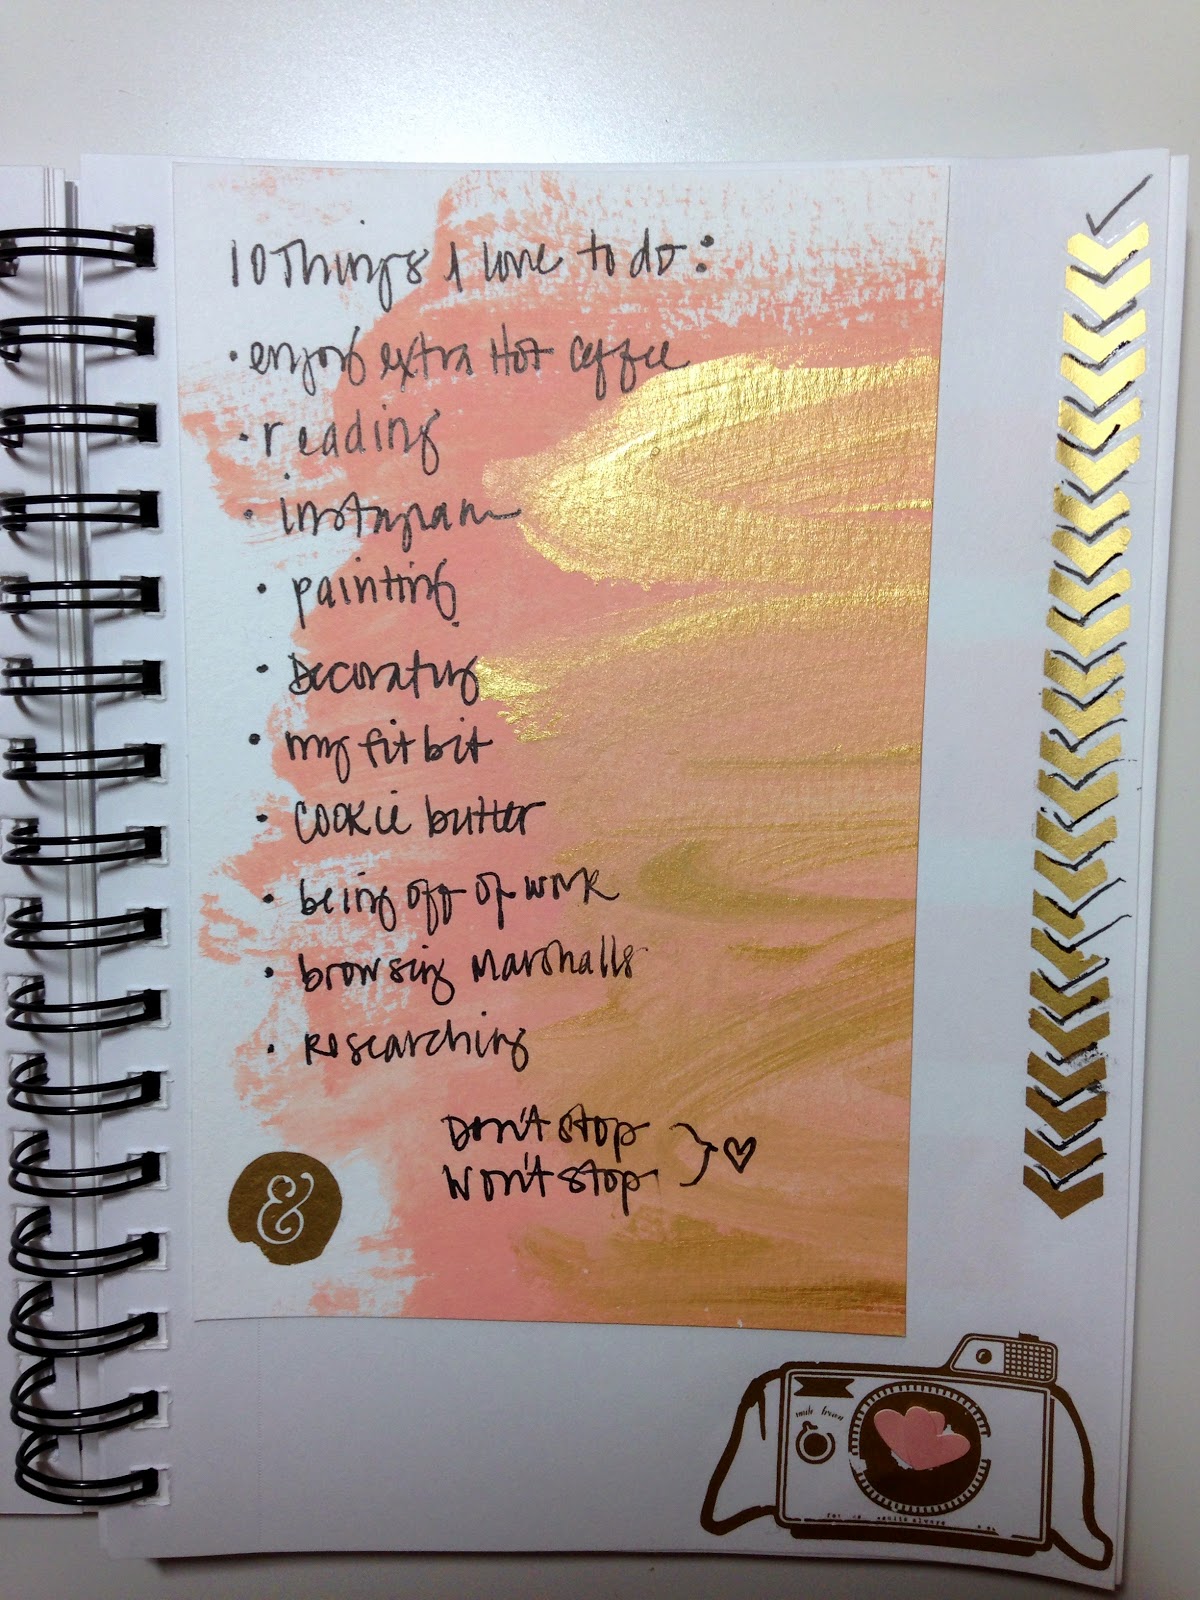 10 Things I love to do:
• enjoy extra Hot coffee
• reading
• instagram
• painting
• Decorating
• my fitbit
• cookie butter
• being off of work
• browsing Marshalls
• Researching
Don't stop
Won't stop
&